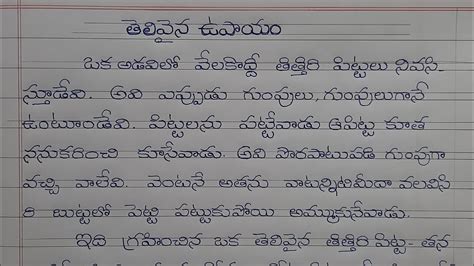 తెలివైన ఉపాయం
ఒక అడవిలో వేలకొద్దీ తిత్తిరి పిట్టలు నివసి-
స్తూడేవి. అవి ఎప్పుడు గుంపులు, గుంపులుగానే
ఉంటూండేవి. పిట్టలను పట్టేవాడు ఆపిట్ట కూత
ననుకరించి కూసేవాడు. అవి పొరపాటుపడి గుంపుగా
వచ్చి వాలేవి. వెంటనే అతను వాటన్నిటిమీదా వలవిసి
రి బుట్టలో పెట్టి పట్టుకుపోయి అమ్ముకునేవాడు.
ఇది గ్రహించిన ఒక తెలివైన తిత్తిరి పిట్ట- తన